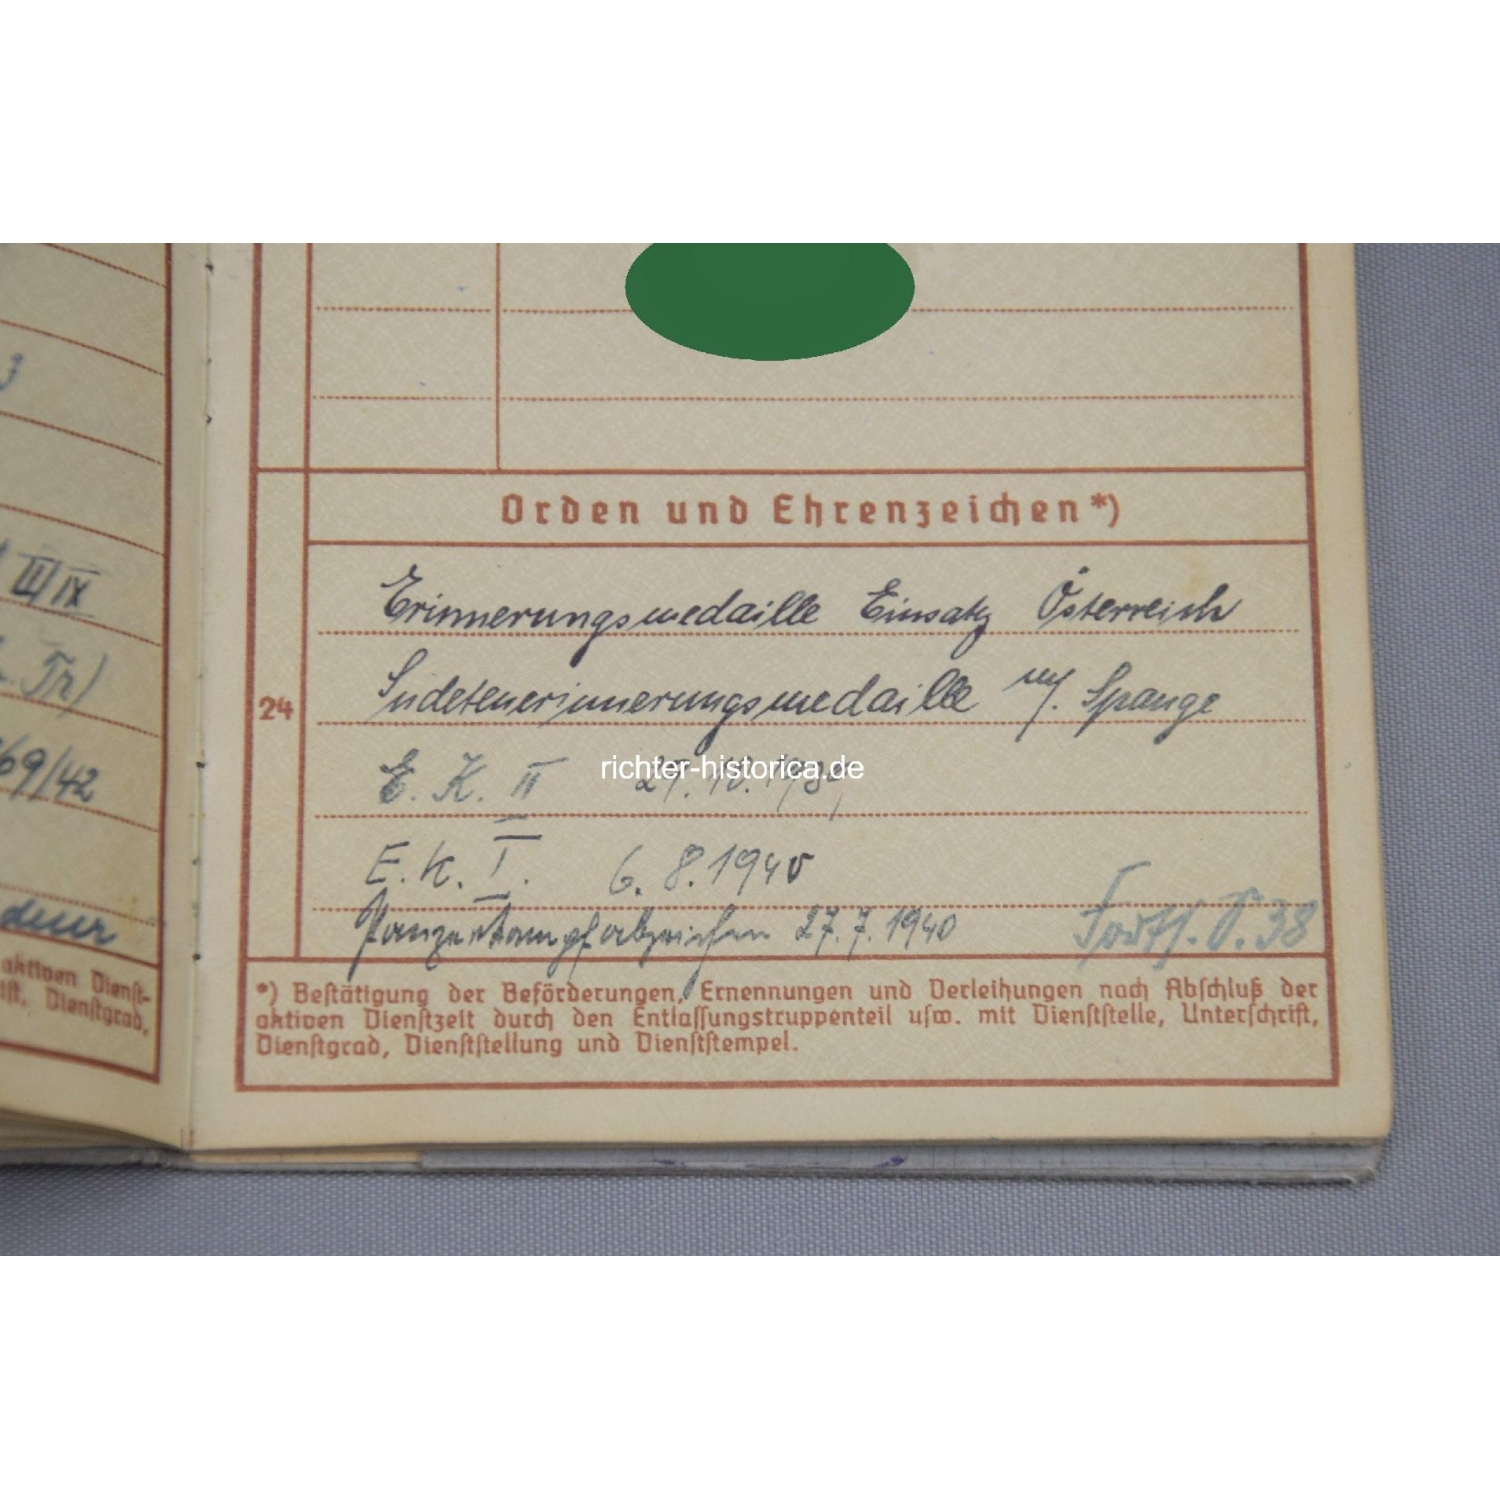 3
II/IX
Tr)
69/42
aktiven Dienst-
Dienstgrad,
Orden und Ehrenzeichen*)
24
Erinnerungsmedaille Einsatz Österreich
Sudetenerinnerungsmedaille m/. Spange
E. K. II 27. 10. 1939
richter-historica.de
E. K. I. 6. 8. 1940
Panzerkampfabzeichen 27. 7. 1940 Forts. S. 38
*) Bestätigung der Beförderungen, Ernennungen und Verleihungen nach Abschluß der
aktiven Dienstzeit durch den Entlassungstruppenteil usw. mit Dienststelle, Unterschrift,
Dienstgrad, Dienststellung und Dienststempel.